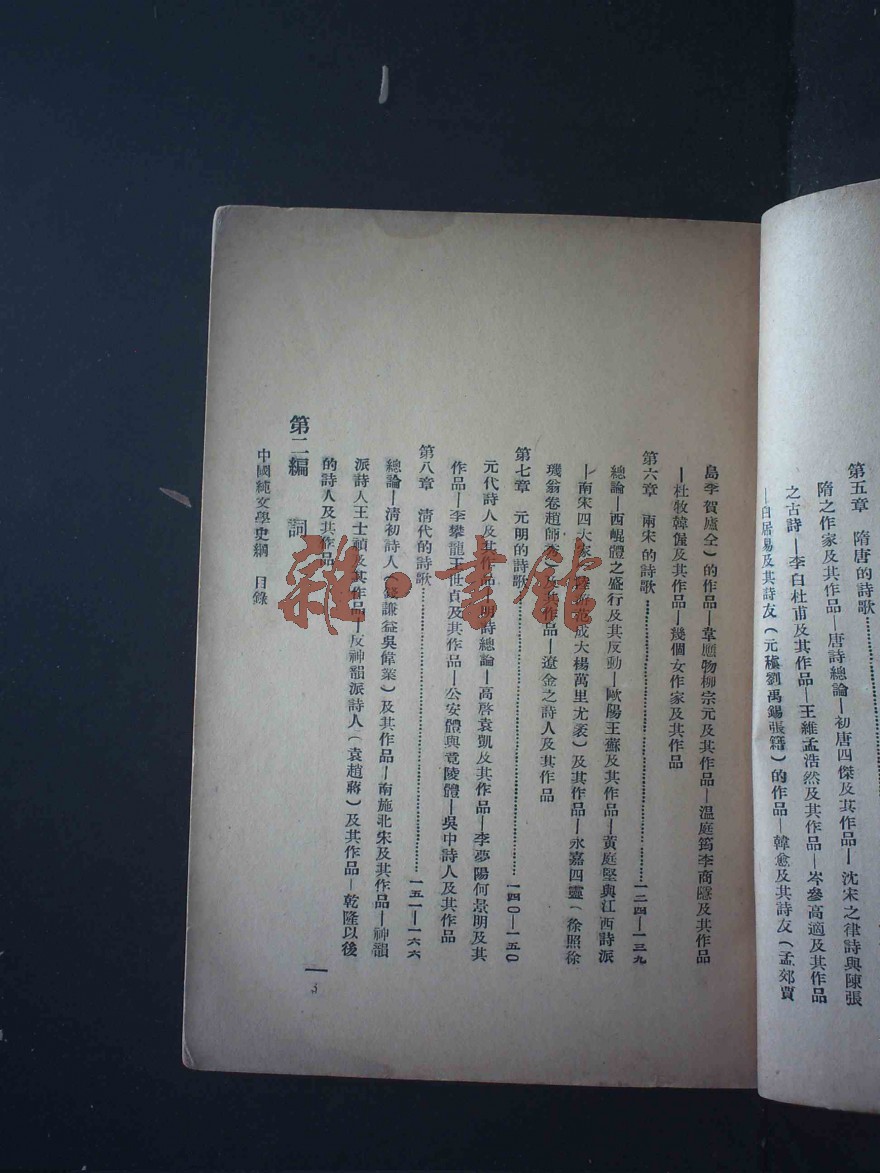 第五章 隋唐的詩歌
隋之作家及其作品—唐詩總論—初唐四傑及其作品—沈宋之律詩與陳張
之古詩—李白杜甫及其作品—王維孟浩然及其作品—岑參高適及其作品
—白居易及其詩友（元稹劉禹錫張籍）的作品—韓愈及其詩友（孟郊賈
島李賀盧仝）的作品—韋應物柳宗元及其作品—温庭筠李商隱及其作品
—杜牧韓偓及其作品—幾個女作家及其作品
第六章 兩宋的詩歌 一二四—一三九
總論—西崐體之盛行及其反動—歐陽王蘇及其作品—黃庭堅與江西詩派
—南宋四大家 范成大楊萬里尤袤）及其作品—永嘉四靈（徐照徐
璣翁卷趙師秀）及其作品—遼金之詩人及其作品
第七章 元明的詩歌 一四〇—一五〇
元代詩人及其作品—明詩總論—高啓袁凱及其作品—李夢陽何景明及其
作品—李攀龍王世貞及其作品—公安體與竟陵體—吳中詩人及其作品
第八章 清代的詩歌 一五一—一六六
總論—清初詩人（錢謙益吳偉業）及其作品—南施北宋及其作品—神韻
派詩人王士禎及其作品—反神韻派詩人（袁趙蔣）及其作品—乾隆以後
的詩人及其作品
第二編 詞
中國純文學史綱 目錄
3
雜·書館